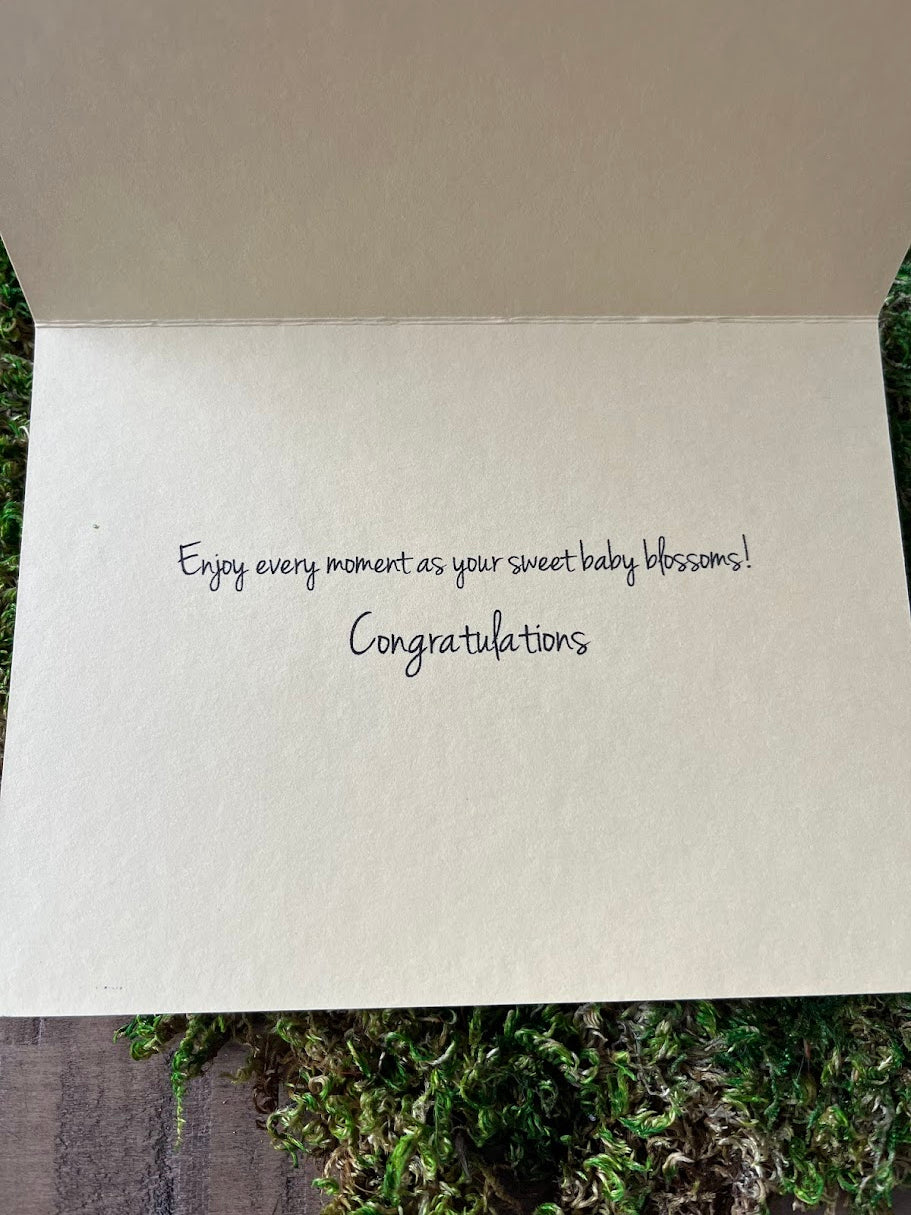 Enjoy every moment as your sweet baby blossoms!
Congratulations